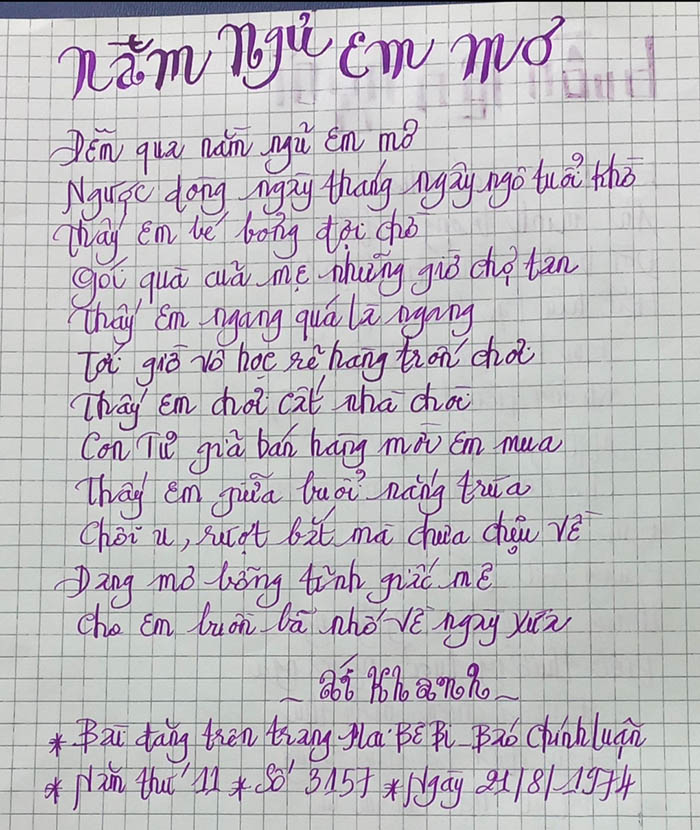 Nằm Ngủ Em Mơ
Đêm qua nằm ngủ em mơ
Ngược dòng ngày tháng ngây ngô tuổi khờ
Thấy em bé bỏng đợi chờ
Gói quà của mẹ những giờ chợ tan
Thấy em ngang quá là ngang
Tới giờ vô học rẽ hàng trốn chơi
Thấy em chơi cất nhà chòi
Con Tư giả bán hàng mời em mua
Thấy em giữa buổi nắng trưa
Chơi u, rượt bắt mà chưa chịu về
Đang mơ bỗng tỉnh giấc mê
Cho em buồn bã nhớ về ngày xưa
_ Ái Khanh _
* Bài đăng trên trang Mai Bê Bi _ Báo Chính Luận
* Năm thứ 11 * Số 3157 * Ngày 21/8/1974